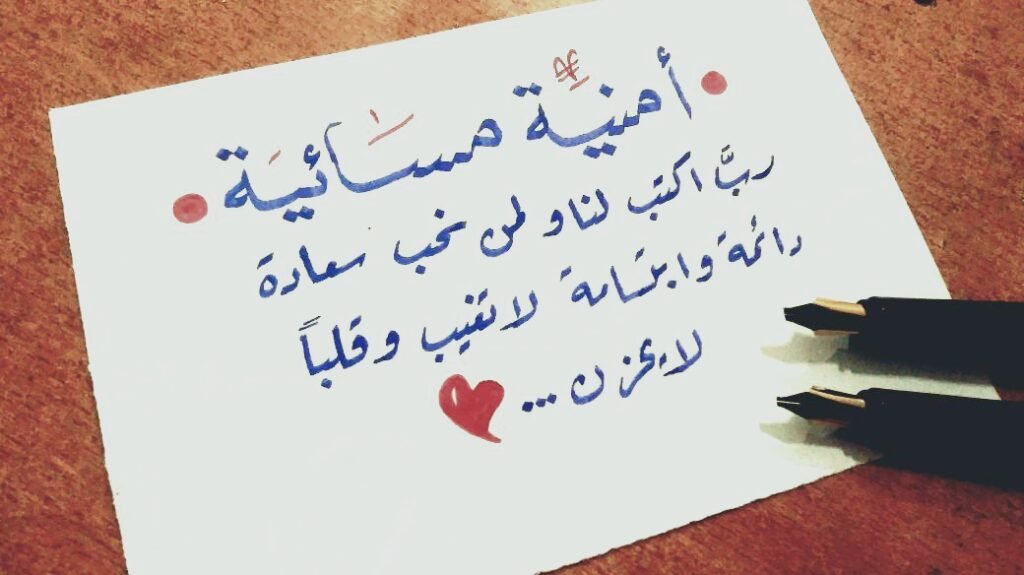 أمنيَّة مسَائيَة
ربَّ اكتب لنا ولمن نحب سعادة
دائمة وابتسامة لا تغيب وقلباً
لا يحزن ...